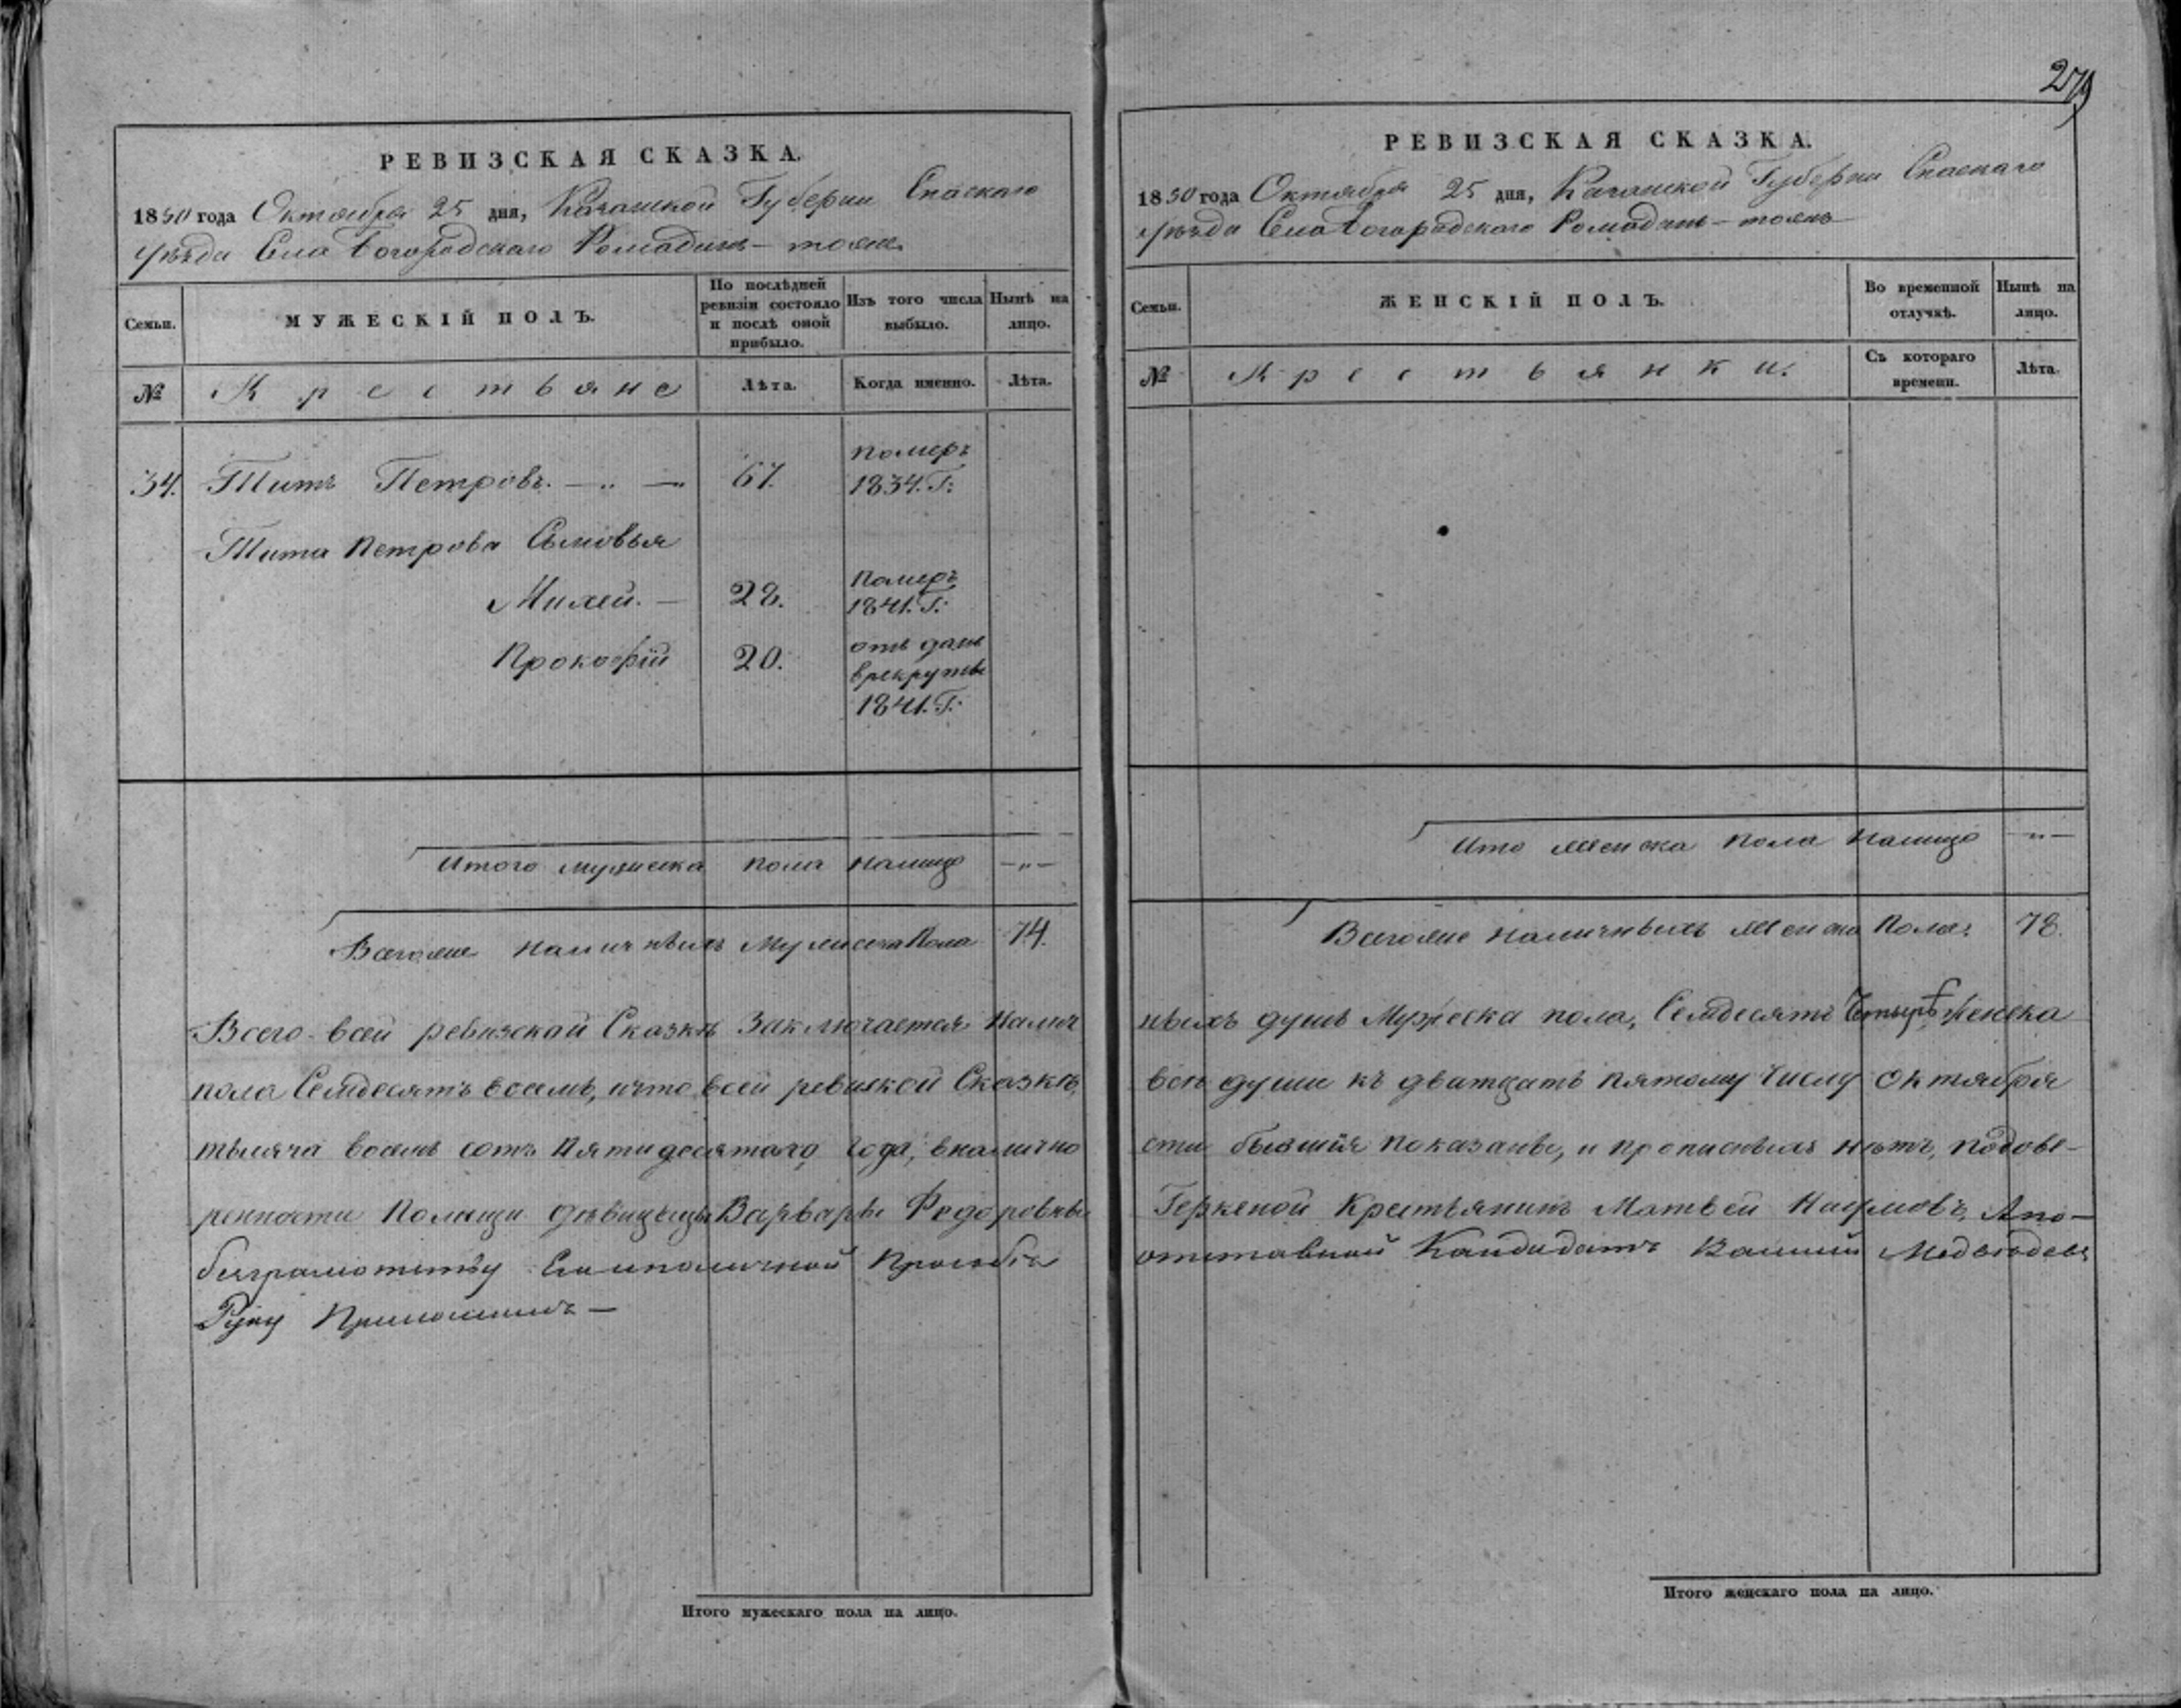 279
РЕВИЗСКАЯ СКАЗКА.
1850 года Октября 25 дня, Казанской Губернии Спаскаго
уѣзда Села Богородскаго Ромадань тожъ
Семьи.
МУЖЕСКІЙ ПОЛЪ.
По послѣдней ревизіи состояло и послѣ оной прибыло.
Изъ того числа выбыло.
Нынѣ на лицо.
№
Крестьяне
Лѣта.
Когда именно.
Лѣта.
34. Титъ Петровъ. — „ — 67. померъ 1834. Г:
Тита Петрова Сыновья
Михей. — 28. Померъ 1841. Г:
Прокофій 20. отъ данъ врекруты 1841. Г:
Итого мужеска пола налицо —„—
Всего же наличныхъ Мужеска Пола 74.
Всего-всей ревизской Сказкѣ Заключается Налич
пола Семдесятъ восемъ, что всей ревиской Сказкѣ,
тысяча восемь сотъ пятидесятаго года, вналично
ренности Помещи дѣвицы Варвары Федоровны
безграмотству Его личной Прозьбѣ
Руку Приложилъ —
Итого мужескаго пола на лицо.
РЕВИЗСКАЯ СКАЗКА.
1850 года Октября 25 дня, Казанской Губернии Спаскаго
уѣзда Села Богородскаго Ромадань — тожъ
Семьи.
ЖЕНСКІЙ ПОЛЪ.
Во временной отлучкѣ.
Нынѣ на лицо.
№
Крестьянки.
Съ котораго времени.
Лѣта.
Ито женска пола Налицо —„—
Всего же наличныхъ женска Пола. 78.
ныхъ душъ Мужеска пола, Семдесятъ Четыре женска
всѣ души къ дватцать пятому Числу Октября
сти бывшія показаны, и прописныхъ нѣтъ, подове-
Геркеной Крестьянинъ Матвей Наумовъ, Апо-
отставной Кандидатъ Василий Медведевъ
Итого женскаго пола на лицо.